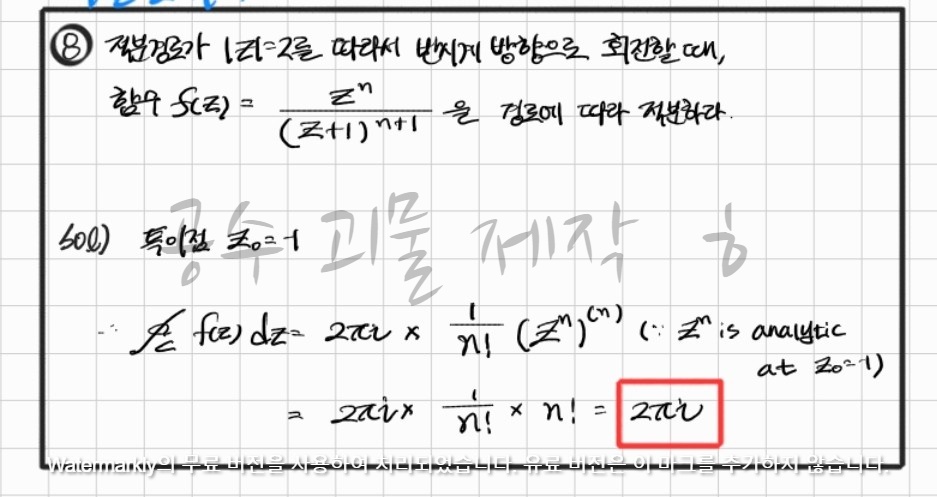 ⑧ 적분경로가 |z|=2를 따라서 반시계 방향으로 회전할 때,
함수 f(z) = z^n / (z+1)^{n+1} 을 경로에 따라 적분하라.
공수 괴물 제작 ㅎ
sol) 특이점 z₀=-1
∴ ∮_C f(z) dz = 2πi × 1/n! (z^n)^{(n)} (∵ z^n is analytic
at z₀=-1)
= 2πi × 1/n! × n! = 2πi
Watermarkly의 무료 버전을 사용하여 처리되었습니다. 유료 버전은 이 마크를 추가하지 않습니다.